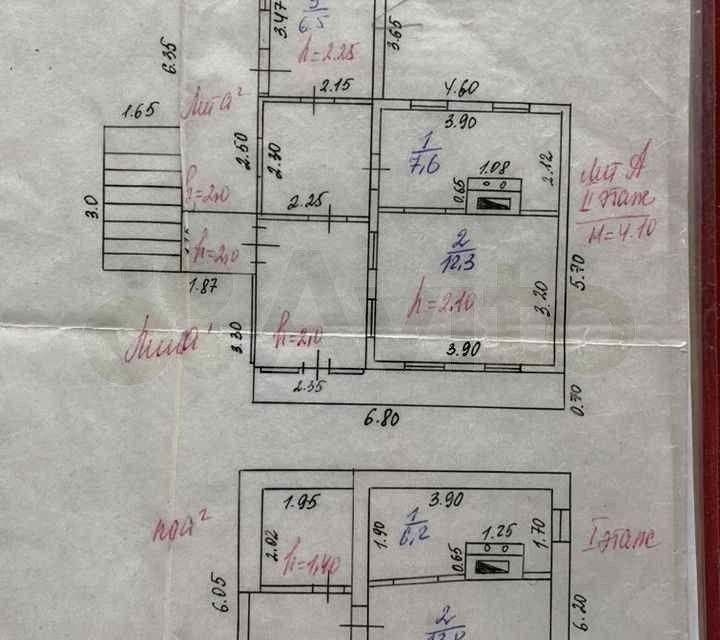 3
6.5
3.47
h=2.25
3.65
6.35
2.15
4.60
Лит а²
1.65
3.90
1
7,6
2.50
2.30
1.08
0.65
2.12
Лит А
II этаж
H=4.10
h=2.0
2.25
3.0
h=2,0
2
12,3
1.87
h=2.10
3.20
5.70
3.30
h=2,0
3.90
2.35
0.70
6.80
1.95
3.90
под а²
1
6,2
1.90
1.25
0.65
1.70
I этаж
2.02
h=1,40
6.05
2
6.20